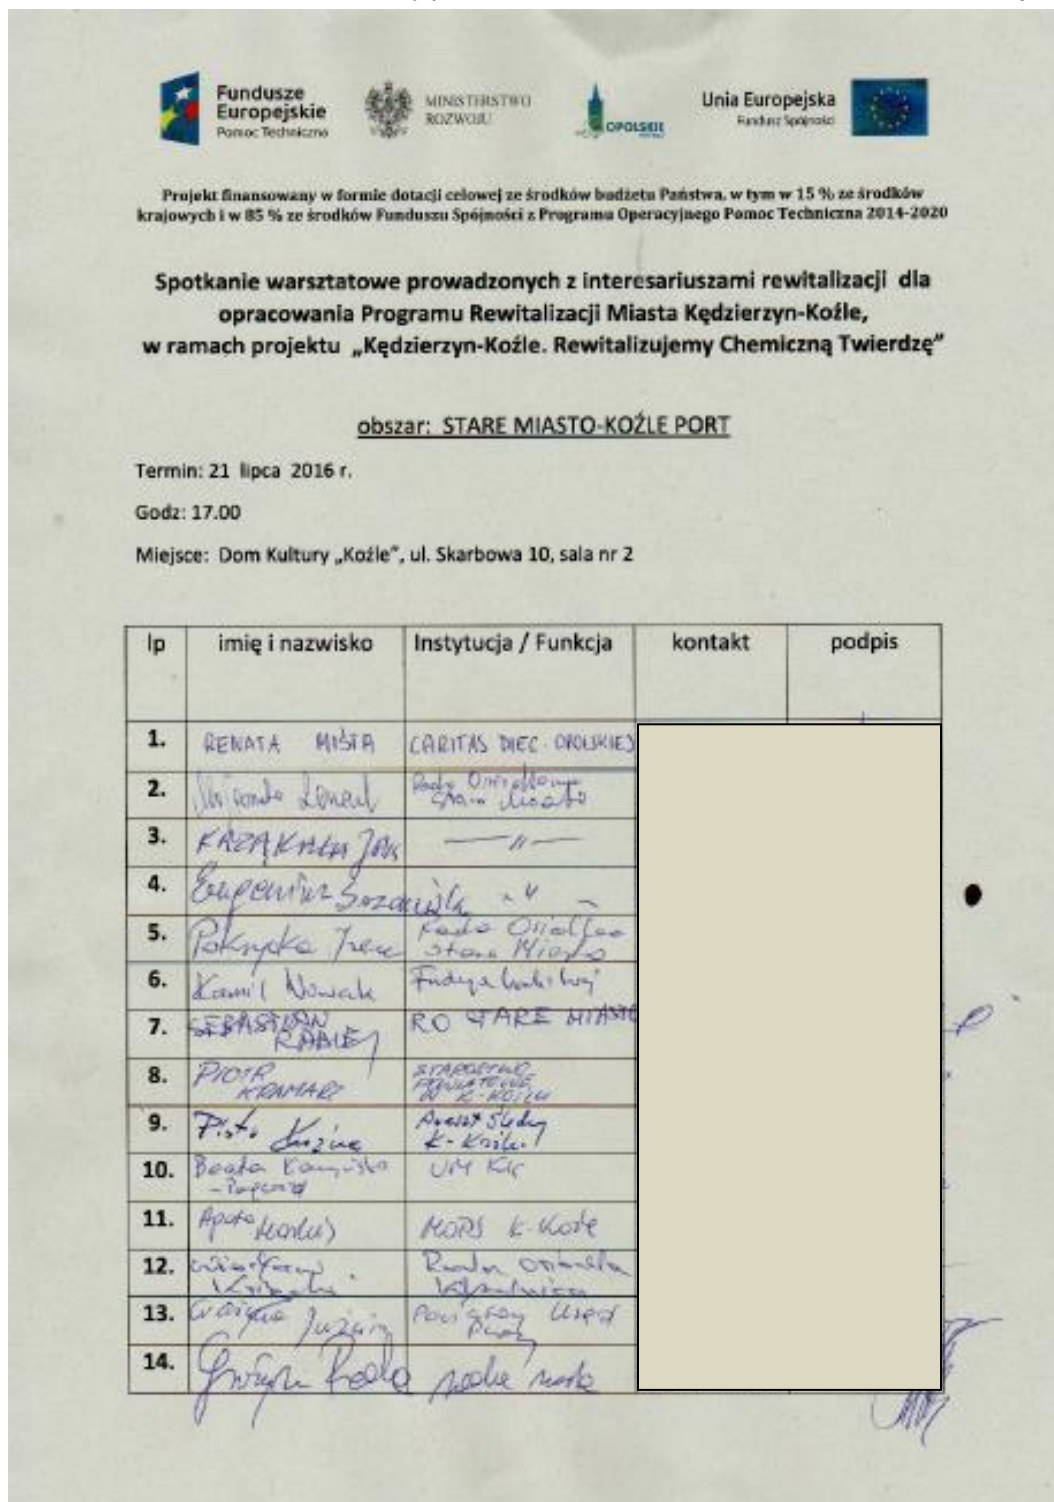 Fundusze
Europejskie
Pomoc Techniczna
MINISTERSTWO
ROZWOJU
OPOLSKIE
Unia Europejska
Fundusz Spójności
Projekt finansowany w formie dotacji celowej ze środków budżetu Państwa, w tym w 15 % ze środków
krajowych i w 85 % ze środków Funduszu Spójności z Programu Operacyjnego Pomoc Techniczna 2014-2020
Spotkanie warsztatowe prowadzonych z interesariuszami rewitalizacji dla
opracowania Programu Rewitalizacji Miasta Kędzierzyn-Koźle,
w ramach projektu „Kędzierzyn-Koźle. Rewitalizujemy Chemiczną Twierdzę”
obszar: STARE MIASTO-KOŹLE PORT
Termin: 21 lipca 2016 r.
Godz: 17.00
Miejsce: Dom Kultury „Koźle”, ul. Skarbowa 10, sala nr 2
lp imię i nazwisko Instytucja / Funkcja kontakt podpis
1. RENATA MIŚTA CARITAS DIEC. OPOLSKIEJ
2. Rada Osiedlowa
Stare Miasto
3. KRZĄKAŁA JAN —〃—
4. Eugeniusz 〃
5. Pokrypka Rada Osiedla
Stare Miasto
6. Kamil Nowak
7. SEBASTIAN RO STARE MIASTO
8. PIOTR STAROSTWO
KRAMARZ POWIATOWE
W K-KOŹLU
9. Areszt Śledczy
K-Koźle
10. Beata UM KK
11. Agata MOPS K-Koźle
12. Rada Osiedla
13. Grażyna Powiatowy Urząd
Pracy
14.